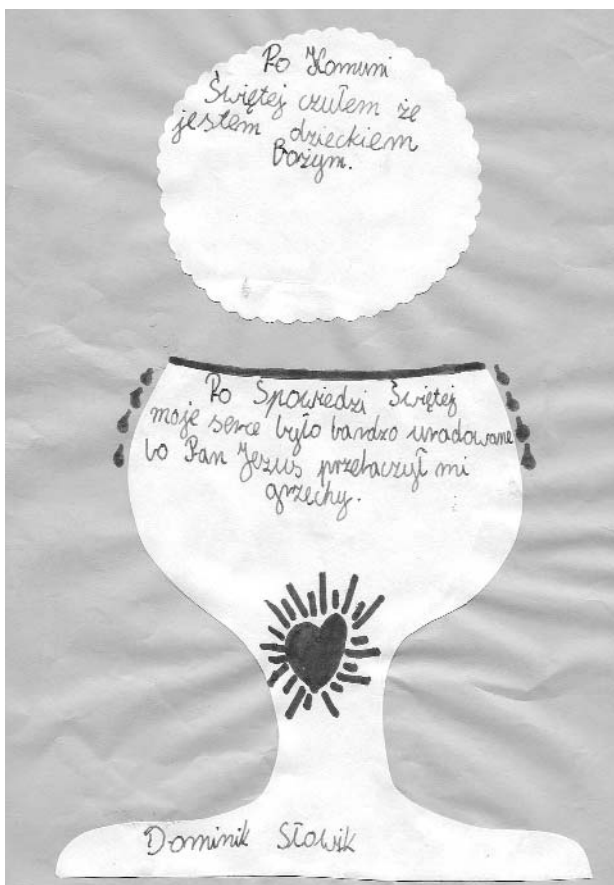 Po Komuni
Świętej czułem że
jestem dzieckiem
Bożym.
Po Spowiedzi Świętej
moje serce było bardzo uradowane
bo Pan Jezus przebaczył mi
grzechy.
Dominik Słowik